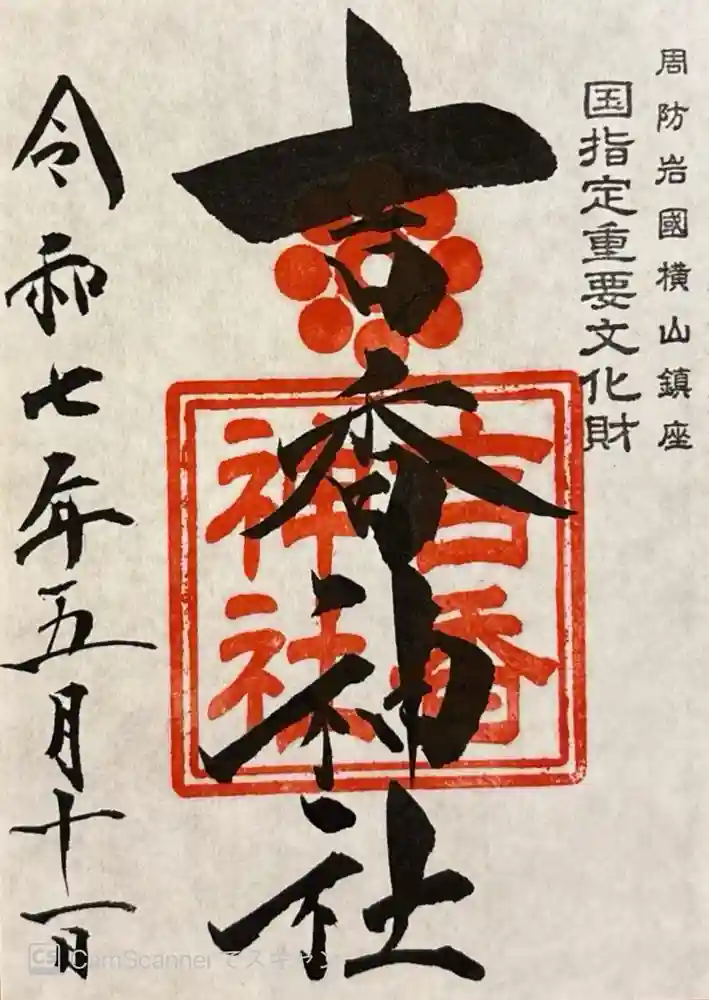 周防岩國横山鎮座
国指定重要文化財
吉香神社
吉香
神社
令和七年五月十一日
CS CamScanner でスキャン